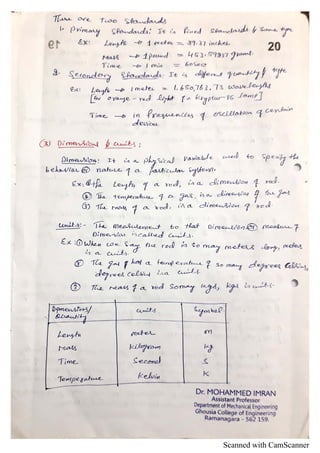 There are Two Standards
1. primary Standards: It is fixed Standards & same type
19
20
Ex: Length → 1 meter = 39.37 inches
Mass → 1 pound = 453.59237 grams.
Time → 1 min = 60 sec
2. Secondary Standards: It is different quantity & type
Ex: Length → 1 meter = 1,650,763.73 wavelengths
[for orange-red light of a krypton-86 lamp]
Time → in frequencies of oscillation of certain
devices.
Dimensions & units:
Dimension: It is a physical variable used to specify the
behavior or nature of a particular system.
Ex: The length of a rod, is a dimension of rod.
② The temperature of a gas, is a dimension of the gas
③ The mass of a rod, is a dimension of rod
units:- The measurement to that Dimension or measure of
Dimension is called units.
Ex: ① When we say the rod is so many meters long, meters
is a unit
② The gas of has a temperature of so many degrees Celsius,
degrees Celsius is a unit
③ The mass of a rod so many kgs, kgs is unit-
Dimensions/ Quantity units Symbol
Length meter m
Mass kilogram kg
Time Second s
Temperature Kelvin K
Dr. MOHAMMED IMRAN
Assistant Professor
Department of Mechanical Engineering
Ghousia College of Engineering
Ramanagara - 562 159.
Scanned with CamScanner